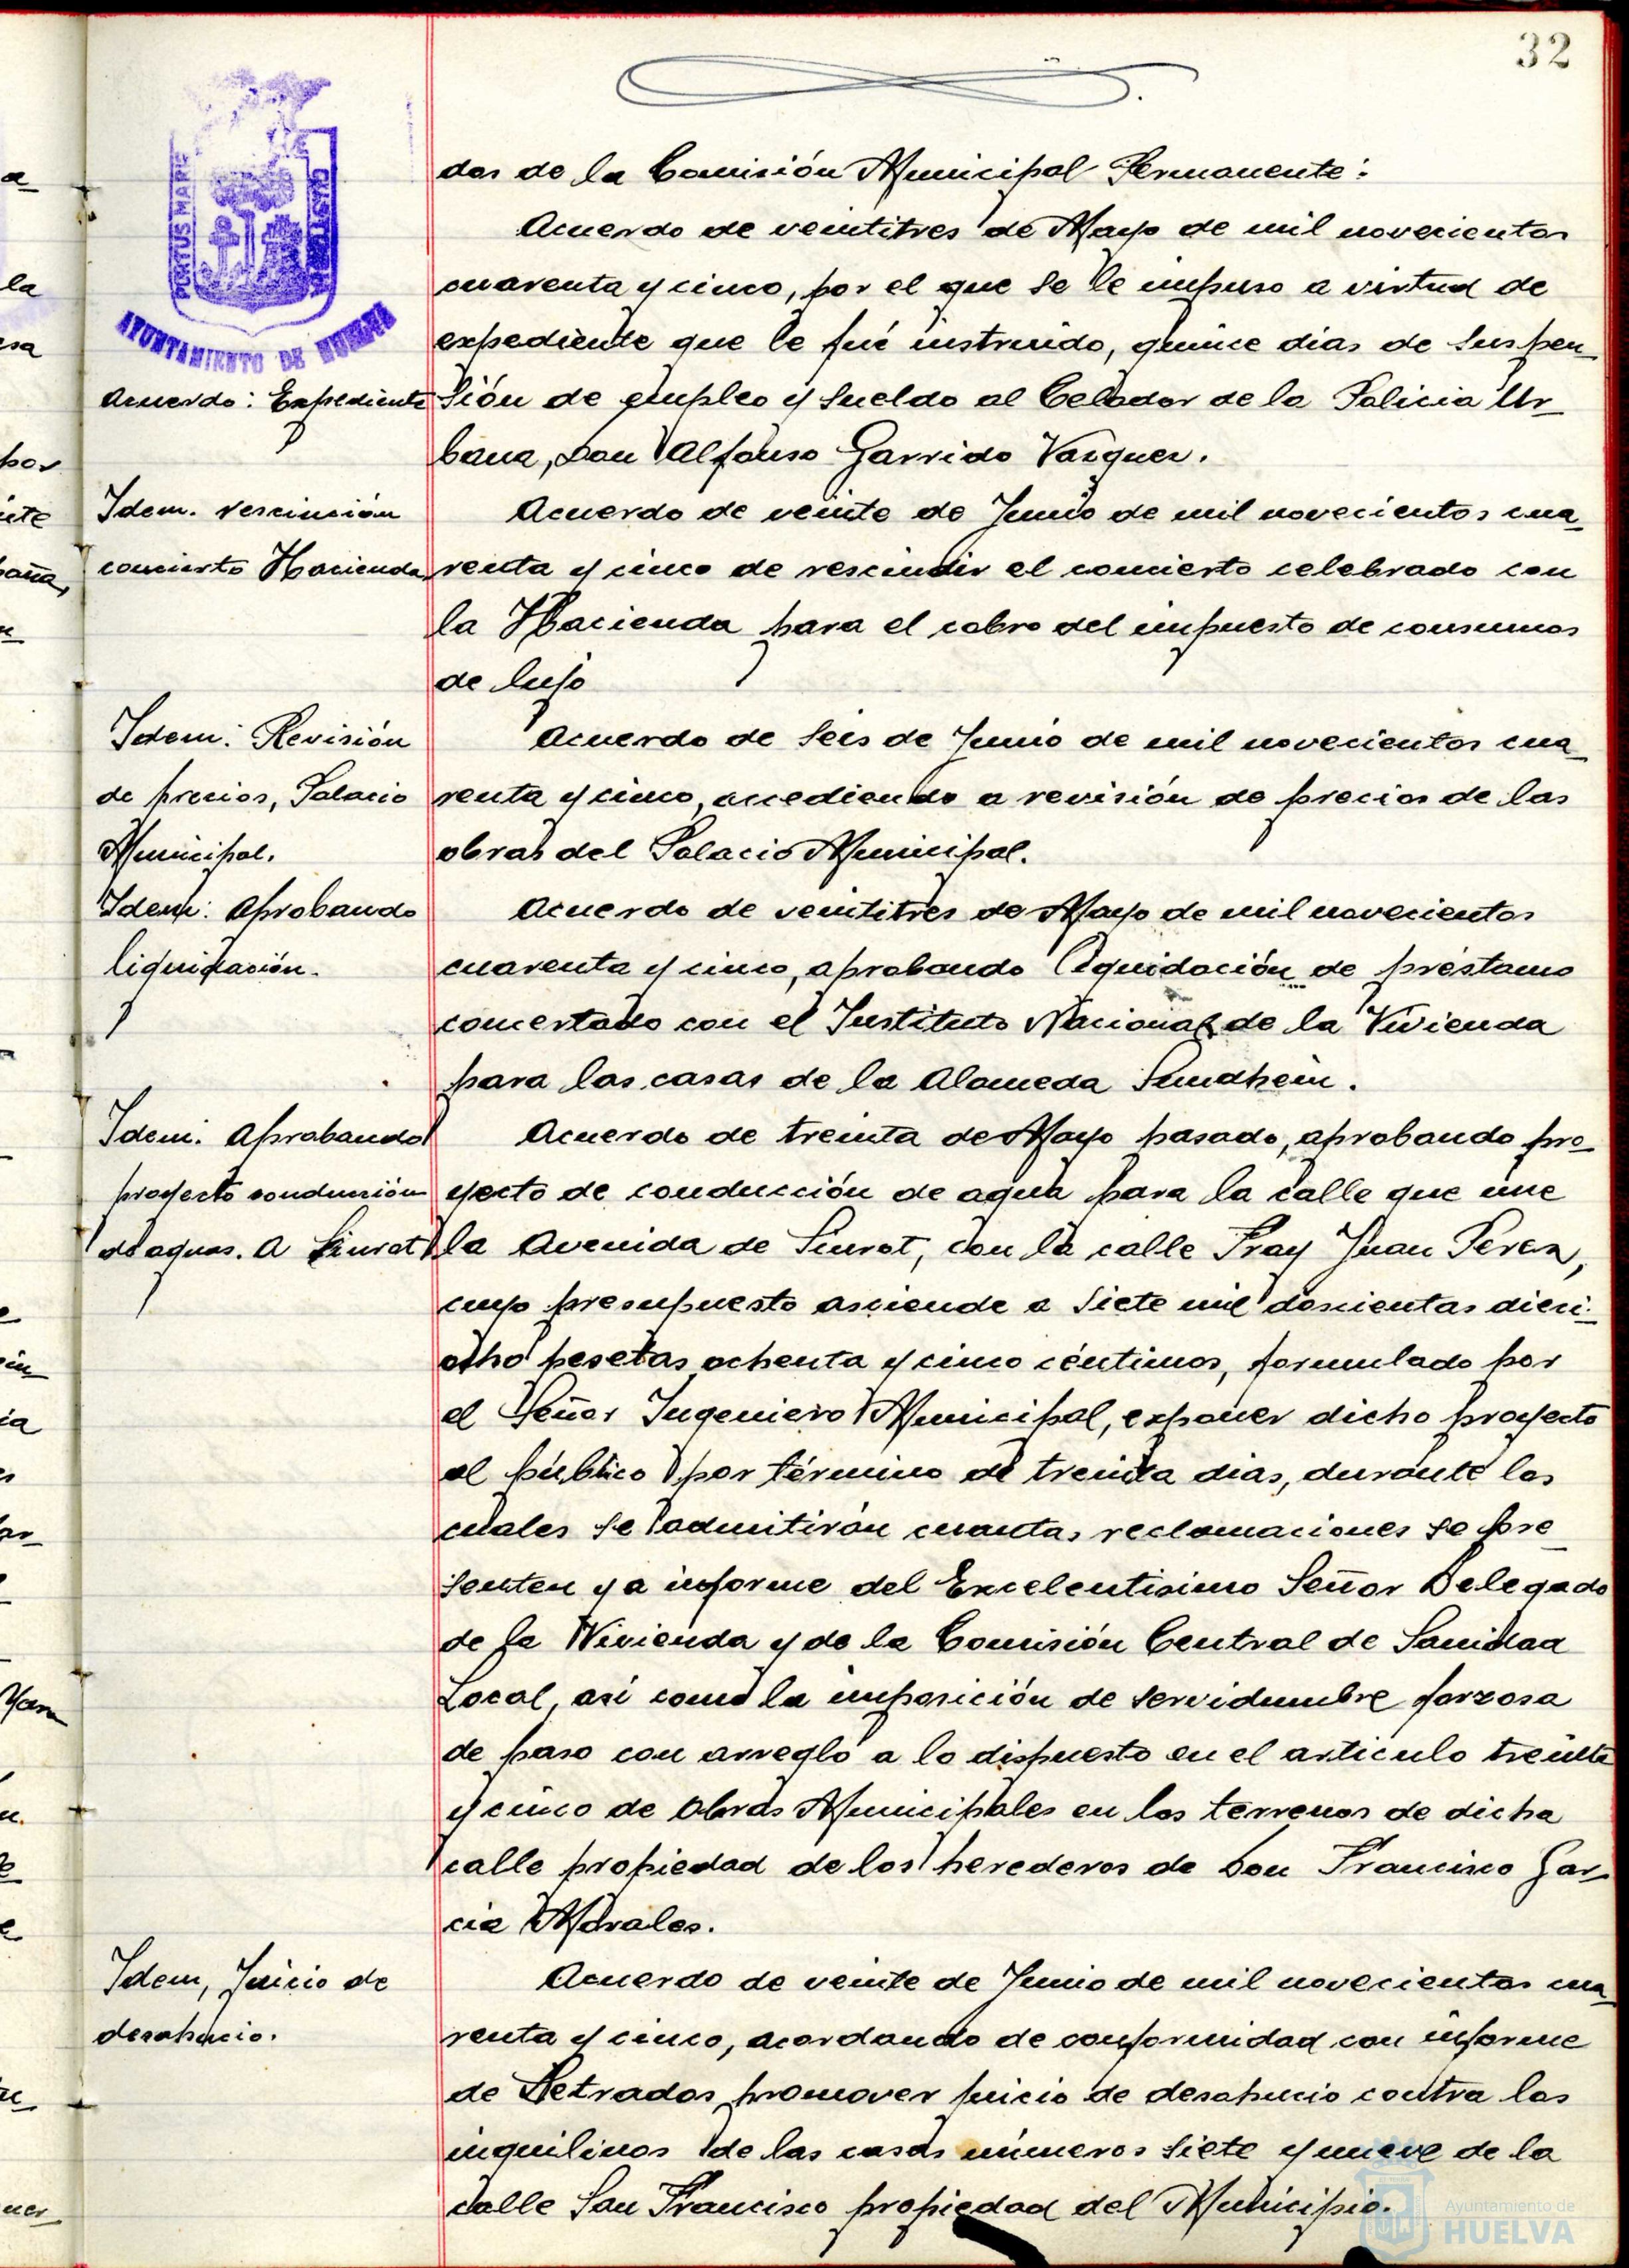 32
PORTUS MARIS
AYUNTAMIENTO DE HUELVA
dos de la Comisión Municipal Permanente:
Acuerdo: Expediente
Acuerdo de veintitres de Mayo de mil novecientos
cuarenta y cinco, por el que se le impuso a virtud de
expediente que le fué instruido, quince dias de suspen-
sión de empleo y sueldo al Celador de la Policia Ur-
bana, Don Alfonso Garrido Vazquez.
Idem. rescinción
concierto Hacienda
Acuerdo de veinte de Junio de mil novecientos cua-
renta y cinco de rescindir el concierto celebrado con
la Hacienda para el cobro del impuesto de consumos
de lujo
Idem: Revisión
de precios, Palacio
Municipal.
Acuerdo de seis de Junio de mil novecientos cua-
renta y cinco, accediendo a revisión de precios de las
obras del Palacio Municipal.
Idem: Aprobando
liquidación.
Acuerdo de veintitres de Mayo de mil novecientos
cuarenta y cinco, aprobando liquidación de préstamo
concertado con el Instituto Nacional de la Vivienda
para las casas de la Alameda Sundhein.
Idem. Aprobando
proyecto conducción
de aguas. A Siurot
Acuerdo de treinta de Mayo pasado, aprobando pro-
yecto de conducción de agua para la calle que une
la Avenida de Siurot, con la calle Fray Juan Perez,
cuyo presupuesto asciende a siete mil doscientas dieci-
ocho pesetas ochenta y cinco céntimos, formulado por
el Señor Ingeniero Municipal, exponer dicho proyecto
al público por término de treinta dias, durante los
cuales se admitirán cuantas reclamaciones se pre-
senten y a informe del Excelentisimo Señor Delegado
de la Vivienda y de la Comisión Central de Sanidad
Local, asi como la imposición de servidumbre forzosa
de paso con arreglo a lo dispuesto en el articulo treinta
y cinco de Obras Municipales en los terrenos de dicha
calle propiedad de los herederos de Don Francisco Gar-
cia Morales.
Idem, Juicio de
desahucio.
Acuerdo de veinte de Junio de mil novecientos cua-
renta y cinco, acordando de conformidad con informe
de Letrados promover juicio de desahucio contra los
inquilinos de las casas números siete y nueve de la
calle San Francisco propiedad del Municipio.
Ayuntamiento de
HUELVA